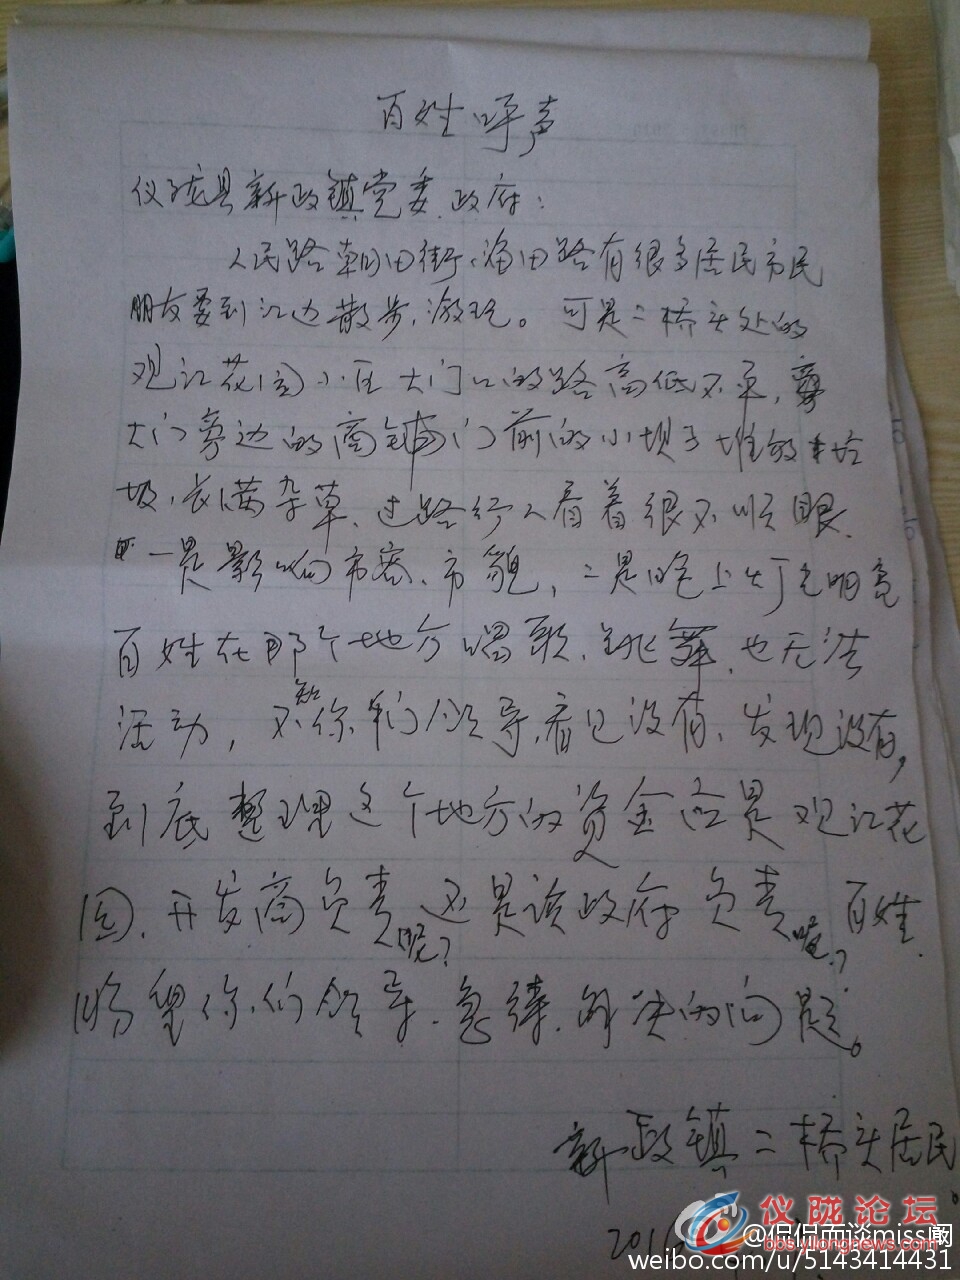 百姓呼声
仪陇县新政镇党委、政府:
人民路朝田街、海田路有很多居民市民
朋友要到江边散步、游玩。可是二桥头处的
观江花园小区大门口的路高低不平,
大门旁边的商铺门前的小坝子堆放垃
圾、长满杂草、过路行人看着很不顺眼、
一是影响市容、市貌,二是晚上灯光明亮
百姓在那个地方唱歌、跳舞、也无法
活动,不知你们领导、看见没有、发现没有,
到底整理这个地方的资金应是观江花
园、开发商负责呢?还是该政府负责呢?百姓
盼望你们领导、急待、解决的问题。
新政镇二桥头居民
201
仪陇论坛
bbs.yilongnews.com
@侃侃而谈miss阚
weibo.com/u/5143414431